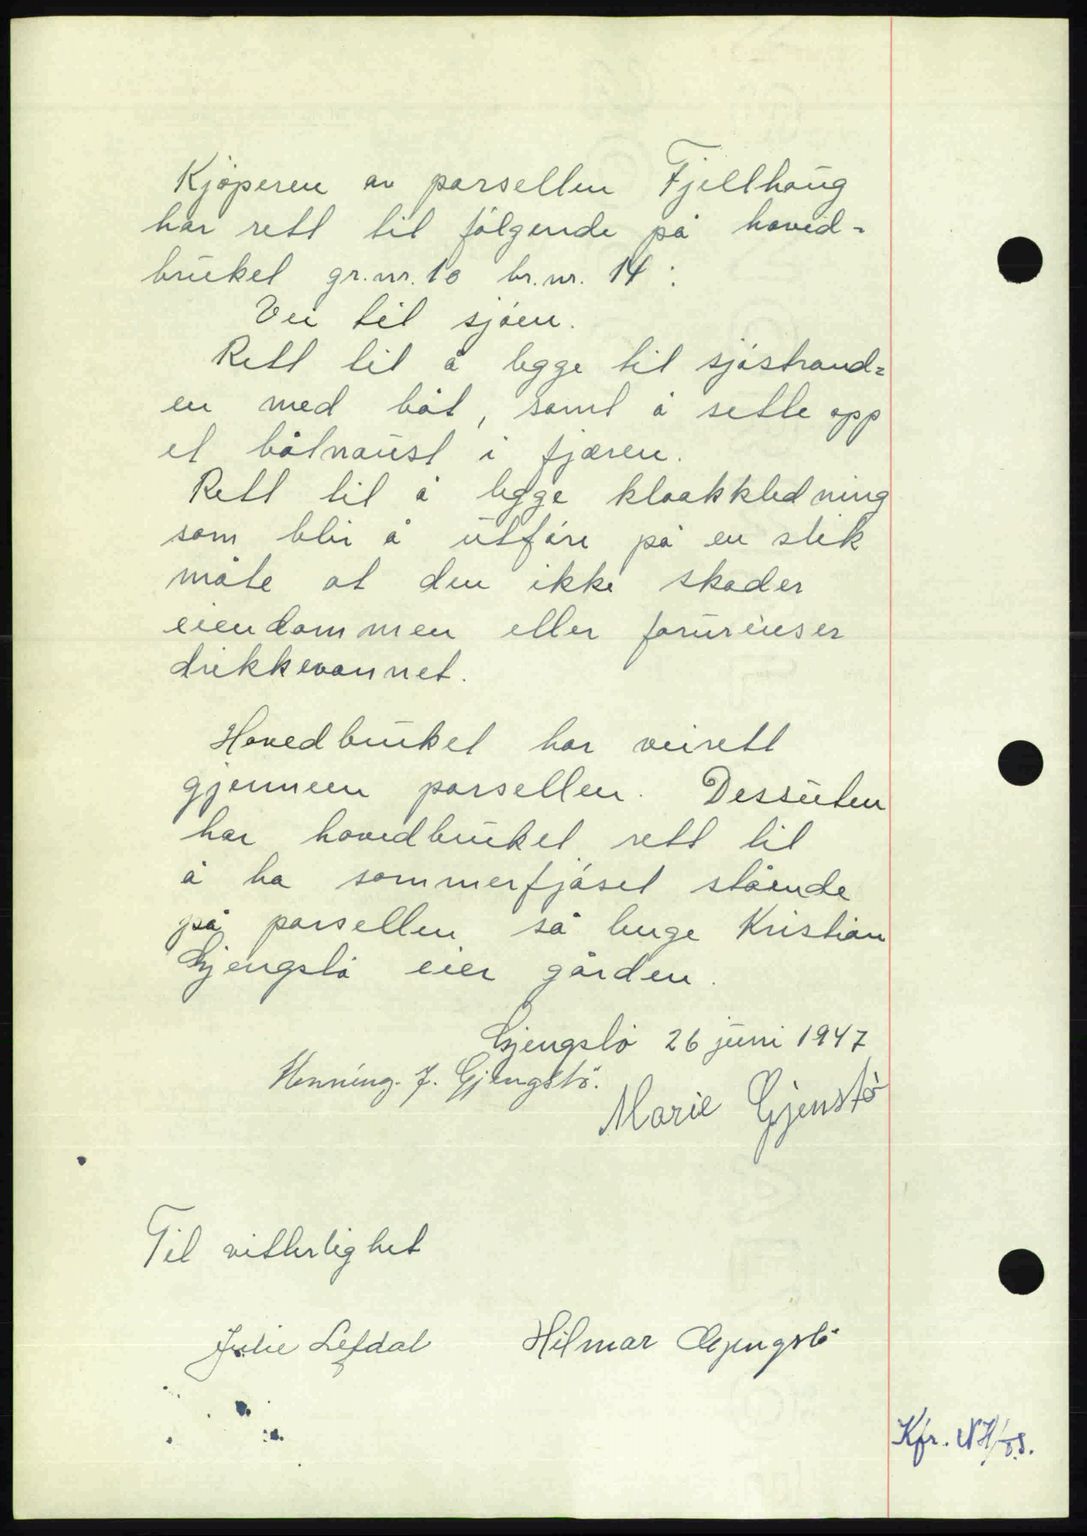 Kjøperen av parsellen Fjellhaug
har rett til følgende på hoved-
bruket gr.nr. 10 br.nr. 14 :
Vei til sjøen.
Rett til å legge til sjøstrand-
en med båt, samt å sette opp
et båtnaust i fjæren.
Rett til å legge kloakkledning
som blir å utføre på en slik
måte at den ikke skader
eiendommen eller forurenser
drikkevannet.
Hovedbruket har veirett
gjennem parsellen. Dessuten
har hovedbruket rett til
å ha sommerfjøset stående
på parsellen så lenge Kristian
Gjengstø eier gården.
Gjengstø 26 juni 1947
Henning. J. Gjengstø.
Marie Gjenstø
Til vitterlighet
Julie Lefdal Hilmar Gjengstø
Kfr.